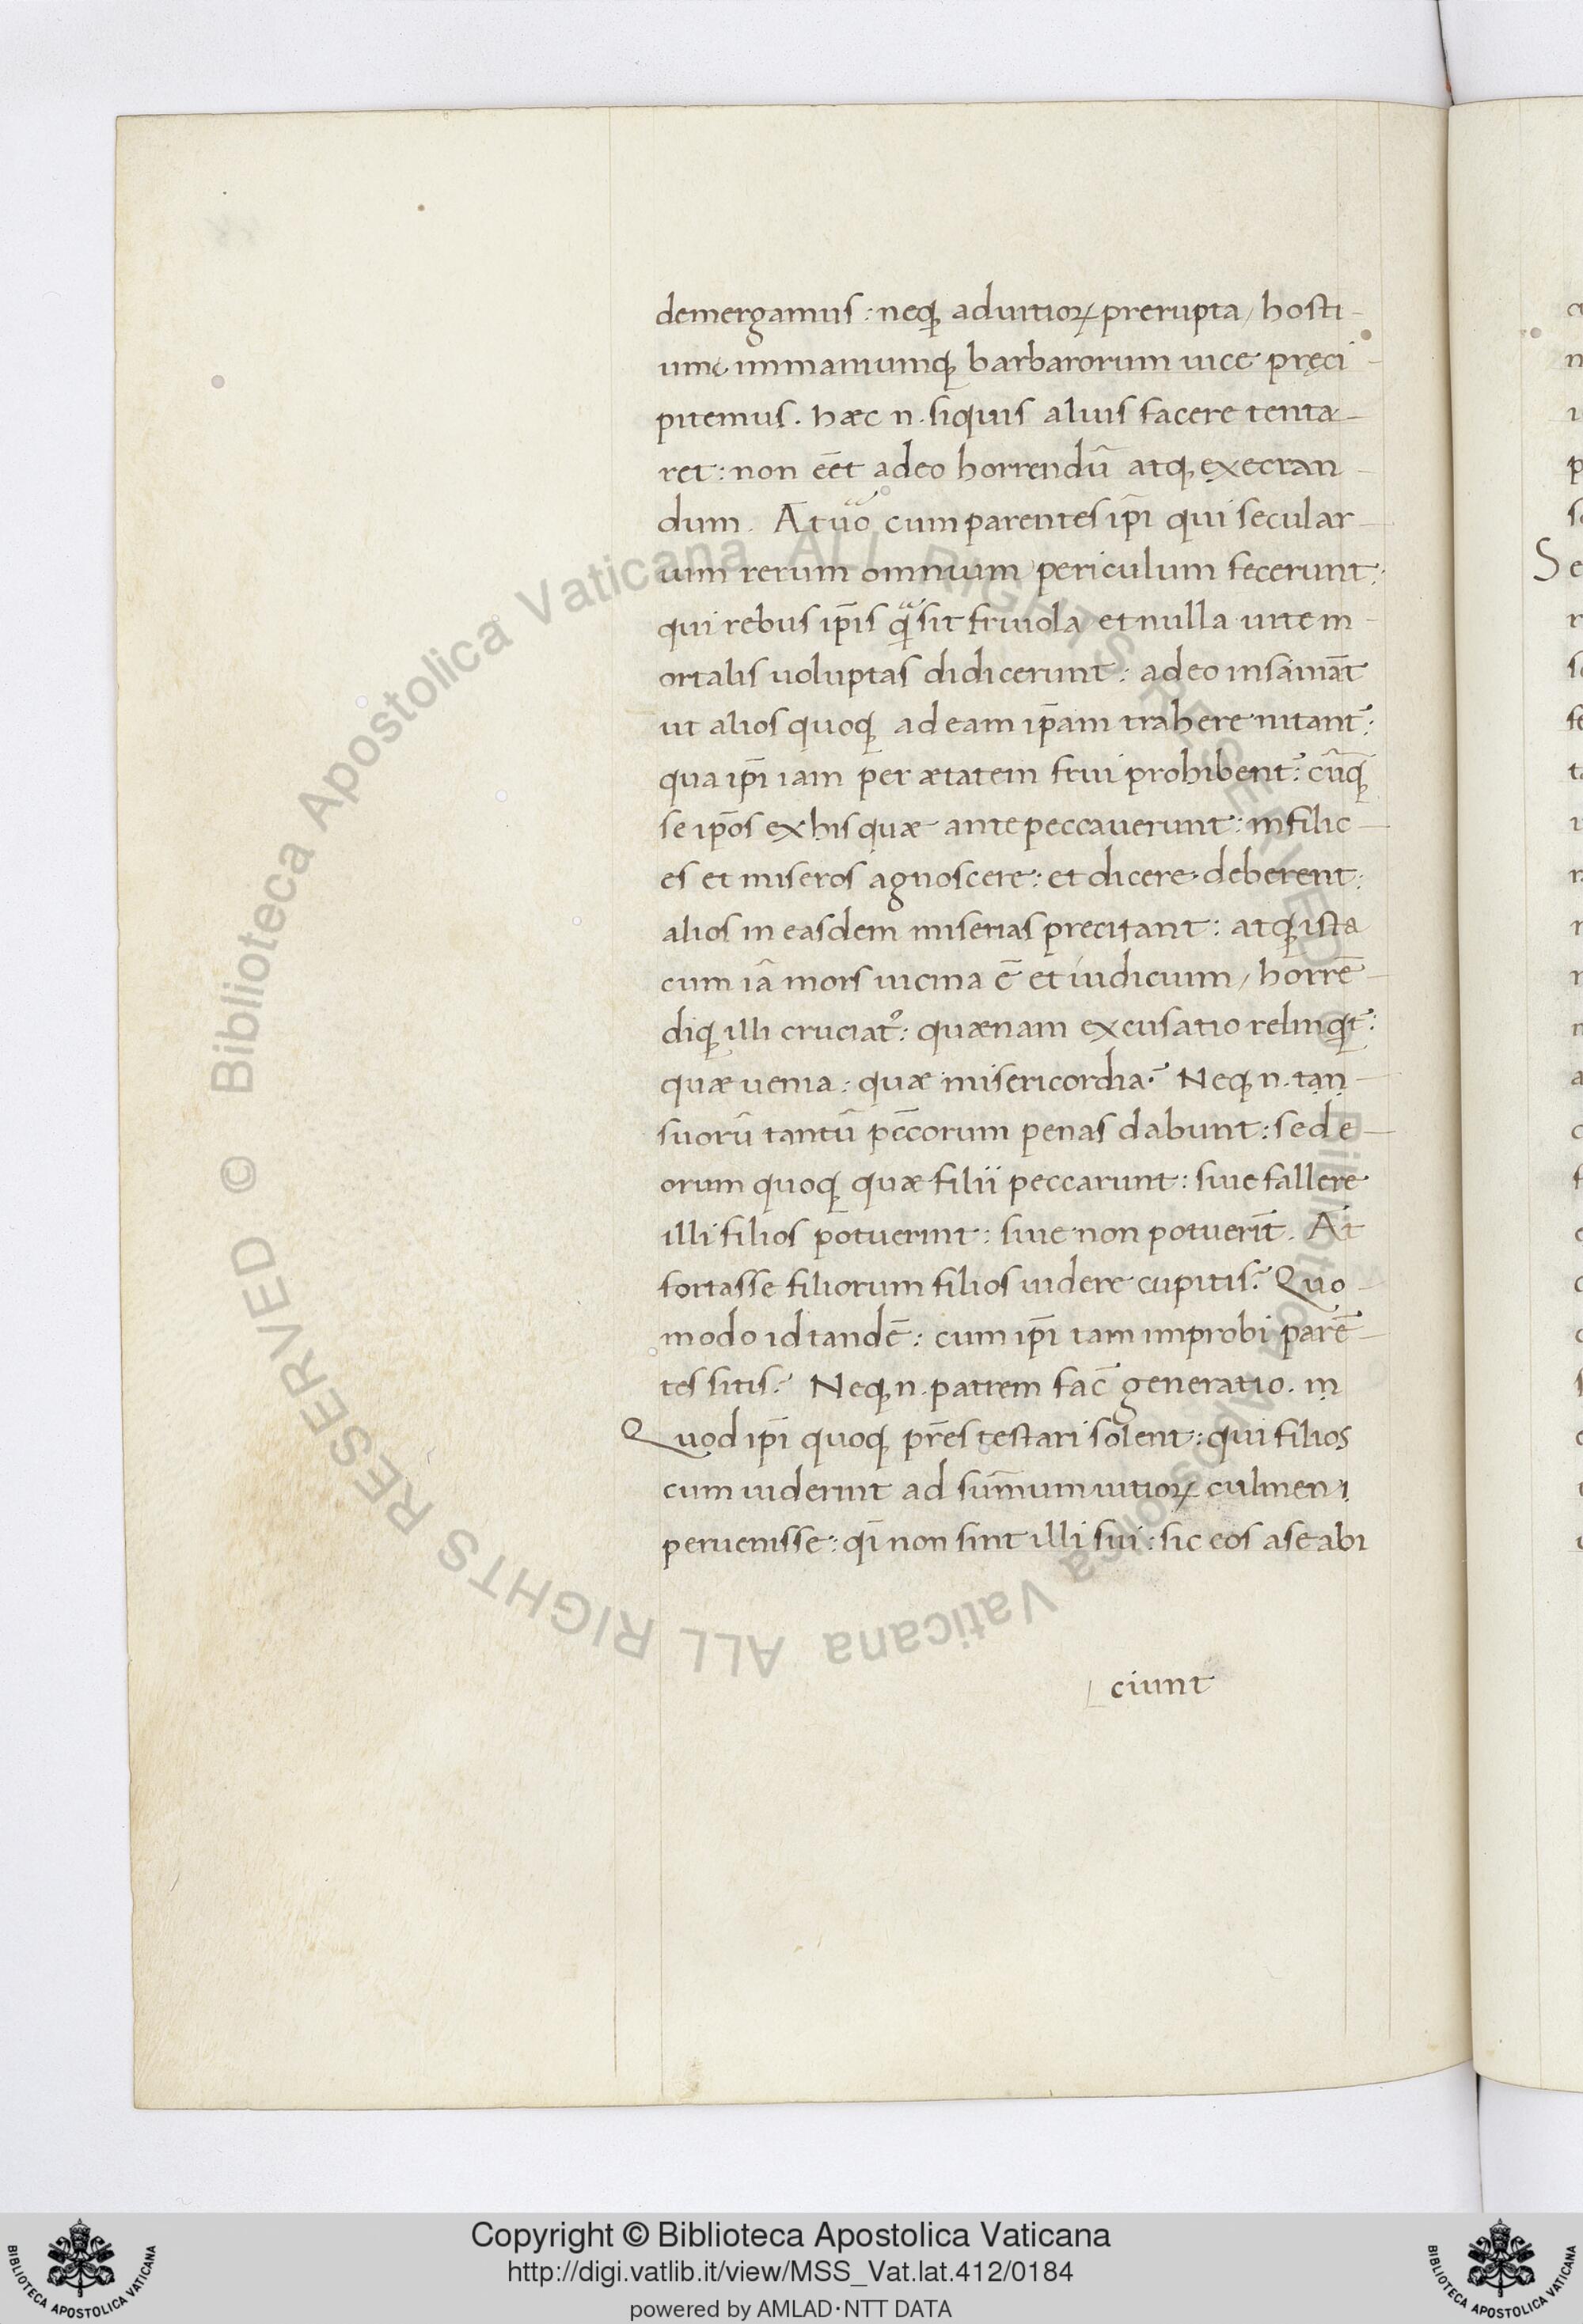 demergamus: neq; ad uitioꝝ prerupta/ hosti-
um immaniumq; barbarorum uice pręci-
pitemus. hæc n. siquis alius facere tenta-
ret: non eēt adeo horrendū atq; execran-
dum. At uo᷒ cum parentes ip̄i qui secular-
ium rerum omnium periculum fecerunt:
qui rebus ip̄is q̄ sit friuola et nulla uite m-
ortalis uoluptas didicerunt: adeo insaniāt
ut alios quoq; ad eam ip̄am trahere nitant᷒:
qua ip̄i iam per ætatem frui prohibent᷒: cūq;
se ip̄os ex his quæ ante peccauerunt: infilic-
es et miseros agnoscere: et dicere deberent:
alios in easdem miserias precitant: atq; ista
cum iā mors uicina ē et iudicium/ horrē-
diq; illi cruciat᷒: quænam excusatio relinqt᷒:
quæ uenia: quæ misericordia? Neq; n. tan-
suorū tantū pēccorum penas dabunt: sed e-
orum quoq; quæ filii peccarunt: siue fallere
illi filios potuerint: siue non potuerīt. At
fortasse filiorum filios uidere cupitis? Quo-
modo id tandē: cum ip̄i tam improbi parē-
tes sitis? Neq; n. patrem fac̄ generatio. in
Quod ip̄i quoq; pr̄es testari solent: qui filios
cum uiderint ad sum̄um uitioꝝ culmen i
peruenisse: qī non sint illi sui: sic eos a se abi
ciunt
S
© Biblioteca Apostolica Vaticana ALL RIGHTS RESERVED © Biblioteca Apostolica Vaticana ALL RIGHTS RESERVED
Copyright © Biblioteca Apostolica Vaticana
http://digi.vatlib.it/view/MSS_Vat.lat.412/0184
powered by AMLAD·NTT DATA
BIBLIOTECA APOSTOLICA VATICANA
BIBLIOTECA APOSTOLICA VATICANA